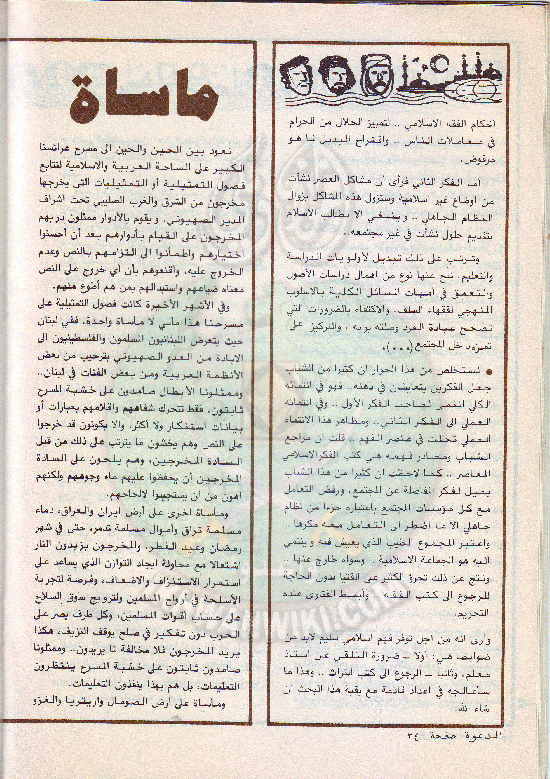 احكام الفقه الاسلامي .. لتمييز الحلال من الحرام
في معاملات الناس .. واقتراح البديل لما هو
مرفوض.
اما الفكر الثاني فرأى ان مشاكل العصر نشأت
من اوضاع غير اسلامية وستزول هذه المشاكل بزوال
النظام الجاهلي .. وينبغي الا يطالب الاسلام
بتقديم حلول نشأت في غير مجتمعه ..
وترتب على ذلك تبديل لأولويات الدراسة
والتعليم. نتج عنها نوع من اهمال دراسات الأصول
والتعمق في امهات المسائل الكلية بالاسلوب
المنهجي لفقهاء السلف. والاكتفاء بالضروريات التي
تصحح عبادة الفرد وصلته بربه . والتركيز على
تميزه داخل المجتمع (٠٠٠).
• نستخلص من هذا الحوار ان كثيرا من الشباب
جعل الفكرين يتعايشان في ذهنه. فهو في انتمائه
الكلي انتصر لصاحب الفكر الأول .. وفي انتمائه
العملي الى الفكر الثاني .. ومظاهر هذا الانتماء
العملي تجلت في عنصر الفهم .. قلت ان مراجع
الشباب ومصادر فهمه هي كتب الفكر الاسلامي
المعاصر .. كما لاحظت ان كثيرا من هذا الشباب
يميل لفكر المفاصلة عن المجتمع. ورفض التعامل
مع كل مؤسسات المجتمع باعتباره جزءا من نظام
جاهلي الا ما اضطر ان التعامل معه مكرها
واعتبر المجتمع الطيب الذي يعيش فيه وينتمي
اليه هو الجماعة الاسلامية . وسواه خارج عنها ..
ونتج عن ذلك تجرؤ لكثير على الفتيا بدون الحاجة
للرجوع الى كتب الفقه .. وابسط الفتاوى عنده
التحريم.
وارى انه من اجل توفر فهم اسلامي سليم لابد من
ضوابط هي: اولا - ضرورة التلقي عن استاذ
معلم، وثانيا - الرجوع الى كتب التراث .. وهذا ما
سأعالجه في اعداد قادمة مع بقية هذا البحث ان
شاء الله.
ماساة
نعود بين الحين والحين الى مسرح عرائسنا
الكبير على الساحة العربية والاسلامية لنتابع
فصول التمثيلية أو التمثيليات التى يخرجها
مخرجون من الشرق والغرب الصليبي تحت اشراف
المدير الصهيوني. ويقوم بالأدوار ممثلون دربهم
المخرجون على القيام بأدوارهم بعد أن أحسنوا
اختيارهم واطمأنوا الى التزامهم بالنص وعدم
الخروج عليه، وأقنعوهم بأن أي خروج على النص
معناه ضياعهم واستبدالهم بمن هم أطوع منهم.
وفي الأشهر الأخيرة كانت فصول التمثيلية على
مسرحنا هذا مآسي لا مأساة واحدة، ففي لبنان
حيث يتعرض اللبنانيون المسلمون والفلسطينيون الى
الابادة من العدو الصهيوني بترحيب من بعض
الأنظمة العربية ومن بعض الفئات في لبنان ..
وممثلونا الأبطال صامدون على خشبة المسرح
ثابتون. فقط تتحرك شفاههم واقلامهم بعبارات أو
بيانات استنكار ولا أكثر، والا يكونون قد خرجوا
على النص وهم يخشون ما يترتب على ذلك من قبل
السادة المخرجين، وهم يلحون على السادة
المخرجين أن يحفظوا عليهم ماء وجوههم ولكنهم
أهون من أن يستجيبوا لالحاحهم.
ومأساة اخرى على أرض ايران والعراق، دماء
مسلمة تراق وأموال مسلمة تدمر، حتى في شهر
رمضان وعيد الفطر، والمخرجون يزيدون النار
اشتعالا مع محاولة ايجاد التوازن الذي يساعد على
استمرار الاستنزاف والاضعاف، وفرصة لتجربة
الأسلحة في أرواح المسلمين ولترويج سوق السلاح
على حساب أقوات المسلمين، وكل طرف يصر على
الحرب دون تفكير في صلح يوقف النزيف، هكذا
يريد المخرجون فلا مخالفة لما يريدون .. وممثلونا
صامدون ثابتون على خشبة المسرح ينتظرون
التعليمات، بل هم بهذا ينفذون التعليمات.
ومأساة على أرض الصومال واريتريا والغزو
الدعوة صفحة ٣٤